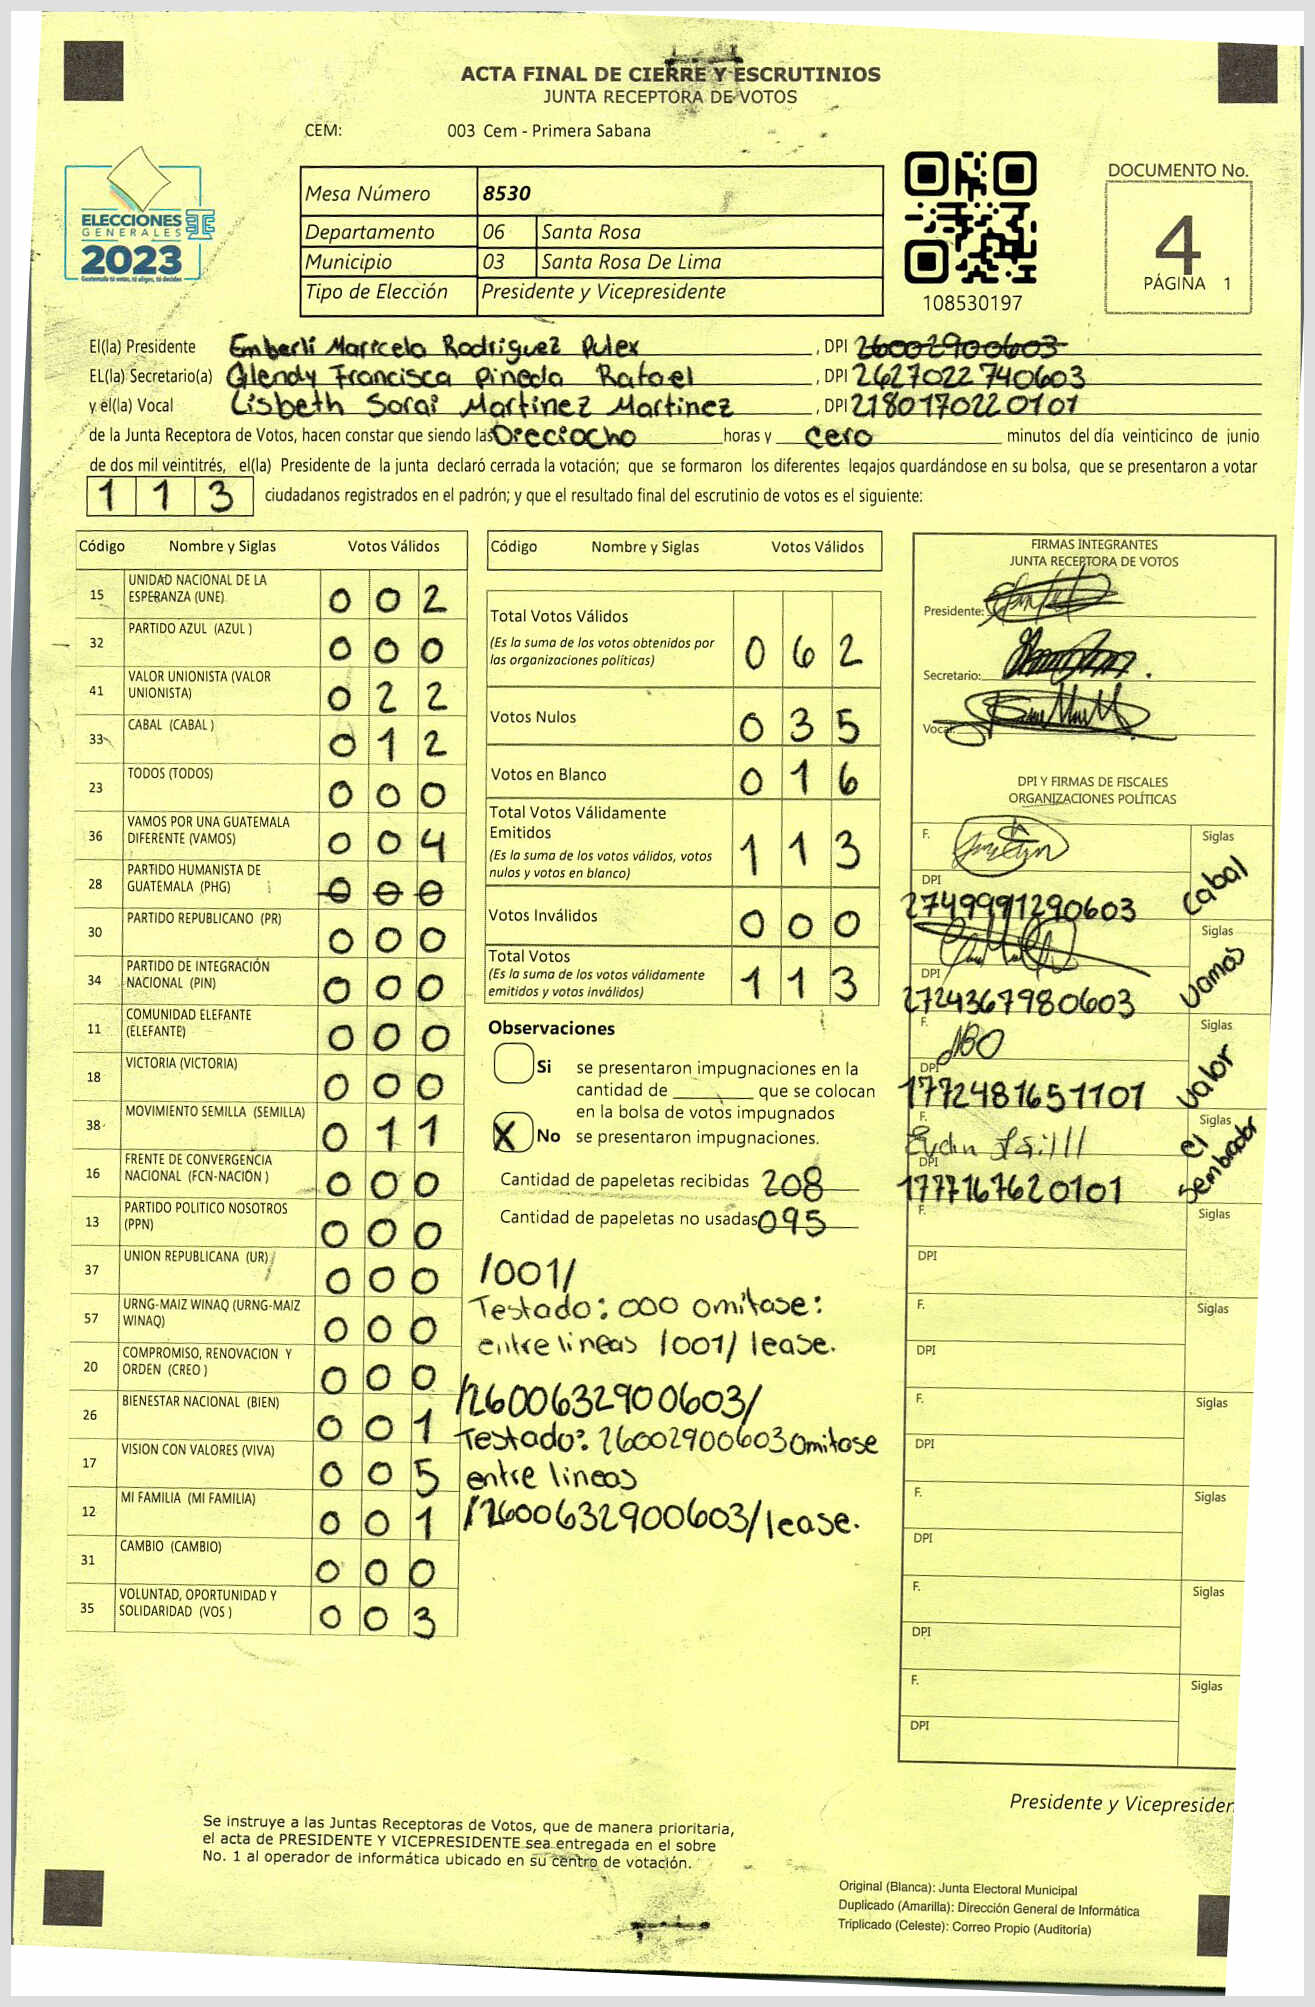 ACTA FINAL DE CIERRE Y ESCRUTINIOS
JUNTA RECEPTORA DE VOTOS
CEM: 003 Cem - Primera Sabana
ELECCIONES
GENERALES
2023
Guatemala: tú votas, tú eliges, tú decides
Mesa Número 8530
Departamento 06 Santa Rosa
Municipio 03 Santa Rosa De Lima
Tipo de Elección Presidente y Vicepresidente
108530197
DOCUMENTO No.
4
PÁGINA 1
El(la) Presidente Emberli Maricela Rodriguez Pulex, DPI 26002900603
EL(la) Secretario(a) Glendy Francisca Pineda Rafael, DPI 2627022740603
y el(la) Vocal Lisbeth Sarai Martinez Martinez, DPI 2180170220101
de la Junta Receptora de Votos, hacen constar que siendo las Dieciocho horas y cero minutos del día veinticinco de junio
de dos mil veintitrés, el(la) Presidente de la junta declaró cerrada la votación; que se formaron los diferentes legajos quardándose en su bolsa, que se presentaron a votar
113 ciudadanos registrados en el padrón; y que el resultado final del escrutinio de votos es el siguiente:
Código Nombre y Siglas Votos Válidos
15 UNIDAD NACIONAL DE LA ESPERANZA (UNE) 002
32 PARTIDO AZUL (AZUL ) 000
41 VALOR UNIONISTA (VALOR UNIONISTA) 022
33 CABAL (CABAL ) 012
23 TODOS (TODOS) 000
36 VAMOS POR UNA GUATEMALA DIFERENTE (VAMOS) 004
28 PARTIDO HUMANISTA DE GUATEMALA (PHG) 000
30 PARTIDO REPUBLICANO (PR) 000
34 PARTIDO DE INTEGRACIÓN NACIONAL (PIN) 000
11 COMUNIDAD ELEFANTE (ELEFANTE) 000
18 VICTORIA (VICTORIA) 000
38 MOVIMIENTO SEMILLA (SEMILLA) 011
16 FRENTE DE CONVERGENCIA NACIONAL (FCN-NACION ) 000
13 PARTIDO POLITICO NOSOTROS (PPN) 000
37 UNION REPUBLICANA (UR) 000
57 URNG-MAIZ WINAQ (URNG-MAIZ WINAQ) 000
20 COMPROMISO, RENOVACION Y ORDEN (CREO ) 000
26 BIENESTAR NACIONAL (BIEN) 001
17 VISION CON VALORES (VIVA) 005
12 MI FAMILIA (MI FAMILIA) 001
31 CAMBIO (CAMBIO) 000
35 VOLUNTAD, OPORTUNIDAD Y SOLIDARIDAD (VOS ) 003
Código Nombre y Siglas Votos Válidos
Total Votos Válidos 062
(Es la suma de los votos obtenidos por
las organizaciones políticas)
Votos Nulos 035
Votos en Blanco 016
Total Votos Válidamente
Emitidos 113
(Es la suma de los votos válidos, votos
nulos y votos en blanco)
Votos Inválidos 000
Total Votos 113
(Es la suma de los votos válidamente
emitidos y votos inválidos)
Observaciones
Si se presentaron impugnaciones en la
cantidad de ________ que se colocan
en la bolsa de votos impugnados
X No se presentaron impugnaciones.
Cantidad de papeletas recibidas 208
Cantidad de papeletas no usadas 095
/001/
Testado: 000 omitase:
entre lineas /001/ lease.
/2600632900603/
Testado: 26002900603 omitase
entre lineas
/2600632900603/ lease.
FIRMAS INTEGRANTES
JUNTA RECEPTORA DE VOTOS
Presidente:
Secretario:
Vocal:
DPI Y FIRMAS DE FISCALES
ORGANIZACIONES POLÍTICAS
F. Siglas Cabal
DPI 2749991290603
Siglas Vamos
DPI 2724367980603
F. Siglas Valor
DPI 1772481651101
F. Siglas el Sembrador
DPI 1777167620101
F. Siglas
DPI
F. Siglas
DPI
F. Siglas
DPI
F. Siglas
DPI
F. Siglas
DPI
F. Siglas
DPI
Presidente y Vicepresiden
Se instruye a las Juntas Receptoras de Votos, que de manera prioritaria,
el acta de PRESIDENTE Y VICEPRESIDENTE sea entregada en el sobre
No. 1 al operador de informática ubicado en su centro de votación.
Original (Blanca): Junta Electoral Municipal
Duplicado (Amarilla): Dirección General de Informática
Triplicado (Celeste): Correo Propio (Auditoría)